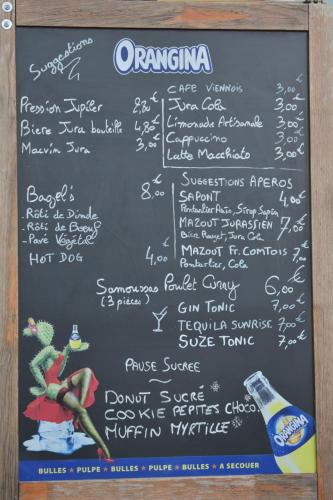 ORANGINA
Suggestions
CAFE VIENNOIS 3,00€
Pression Jupiler 2,20€
Jura Cola 3,00€
Biere Jura bouteille 4,80€
Limonade Artisanale 3,00€
Macvin Jura 3,00€
Cappuccino 3,00€
Latte Macchiato 3,00€
SUGGESTIONS APEROS
Bagel's 8,00€
SAPONT 4,00€
- Rôti de Dinde
Pontarlier Anis, Sirop Sapin
- Rôti de Boeuf
MAZOUT JURASSIEN 7,00€
- Pavé Végétal
Jura Cola
HOT DOG 4,00€
MAZOUT Fr. COMTOIS 7,00€
Pontarlier, Cola
Samoussas Poulet Curry 6,00€
(3 pièces)
GIN TONIC 7,00€
TEQUILA SUNRISE 7,00€
SUZE TONIC 7,00€
PAUSE SUCREE
~
DONUT SUCRÉ
COOKIE PEPITES CHOCO
MUFFIN MYRTILLE
ORANGINA
BULLES ★ PULPE ★ BULLES ★ PULPE ★ BULLES ★ A SECOUER